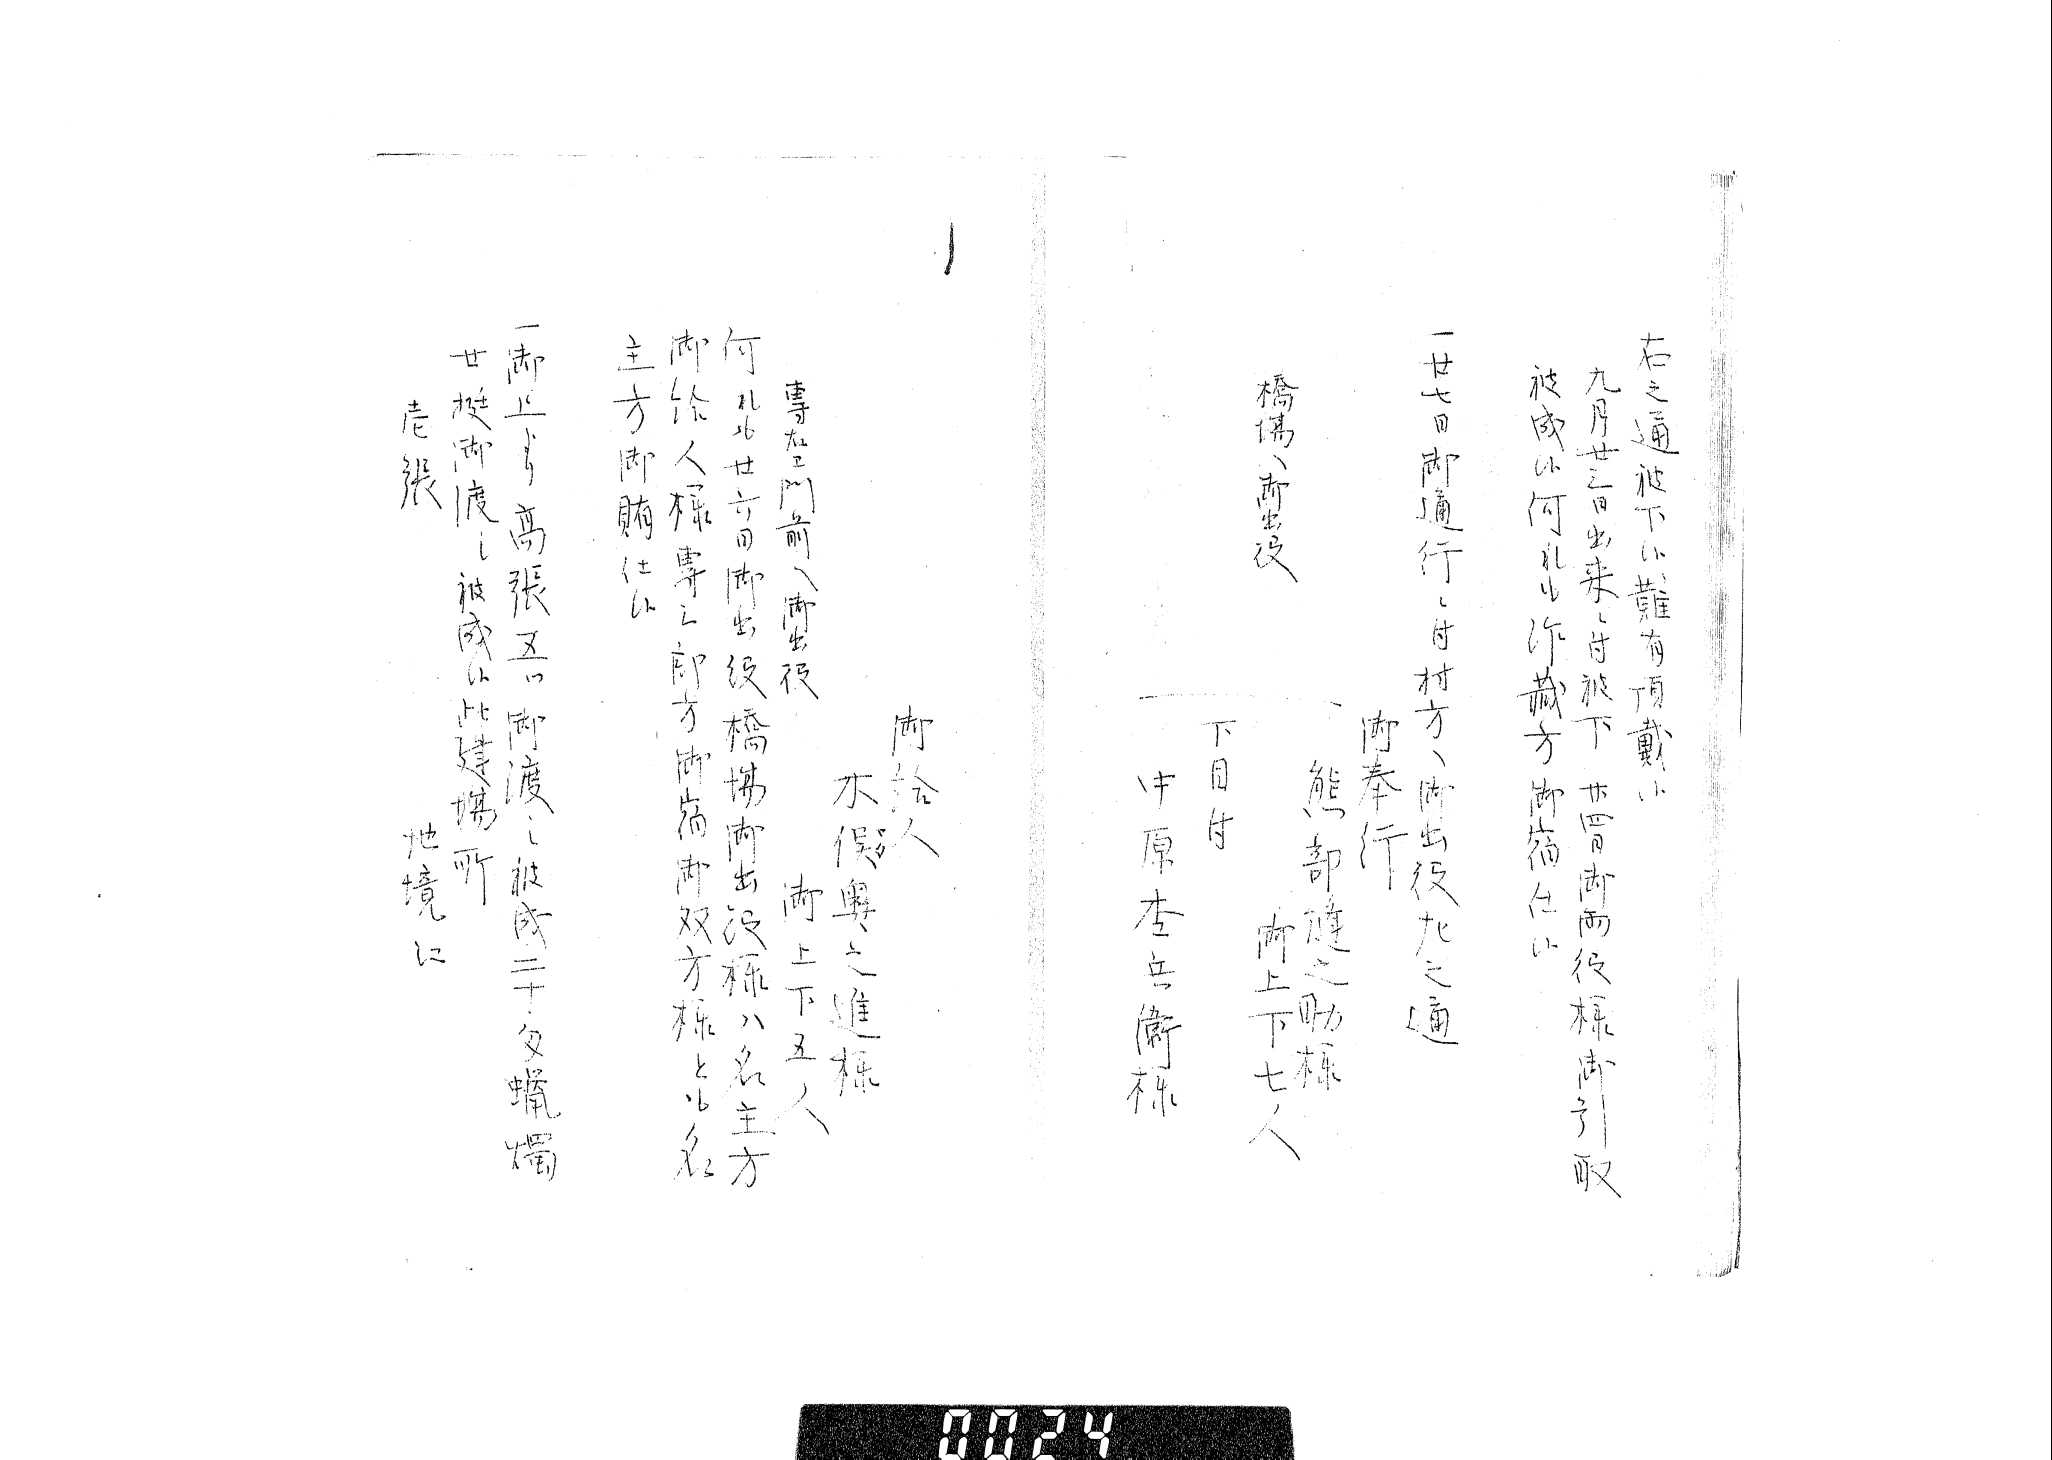 右之通被下候難有頂戴候
九月廿三日出来ニ付被下 廿四日御両役様御引取
被成候何れも作蔵方御宿仕候
一廿七日御通行ニ付村方へ御出役左之通
御奉行
熊部縫之助様
橋場へ御出役
御上下七人
下目付
中原杢兵衛様
御給人
木俣奥之進様
専左エ門前へ御出役
御上下五人
何れも廿六日御出役橋場御出役様ハ名主方
御給人様専三郎方御宿御双方様とも名
主方御賄仕候
一御上より高張五ツ御渡しニ被成二十匁蝋燭
廿挺御渡しニ被成候此建場所
壱張
地境に
0024